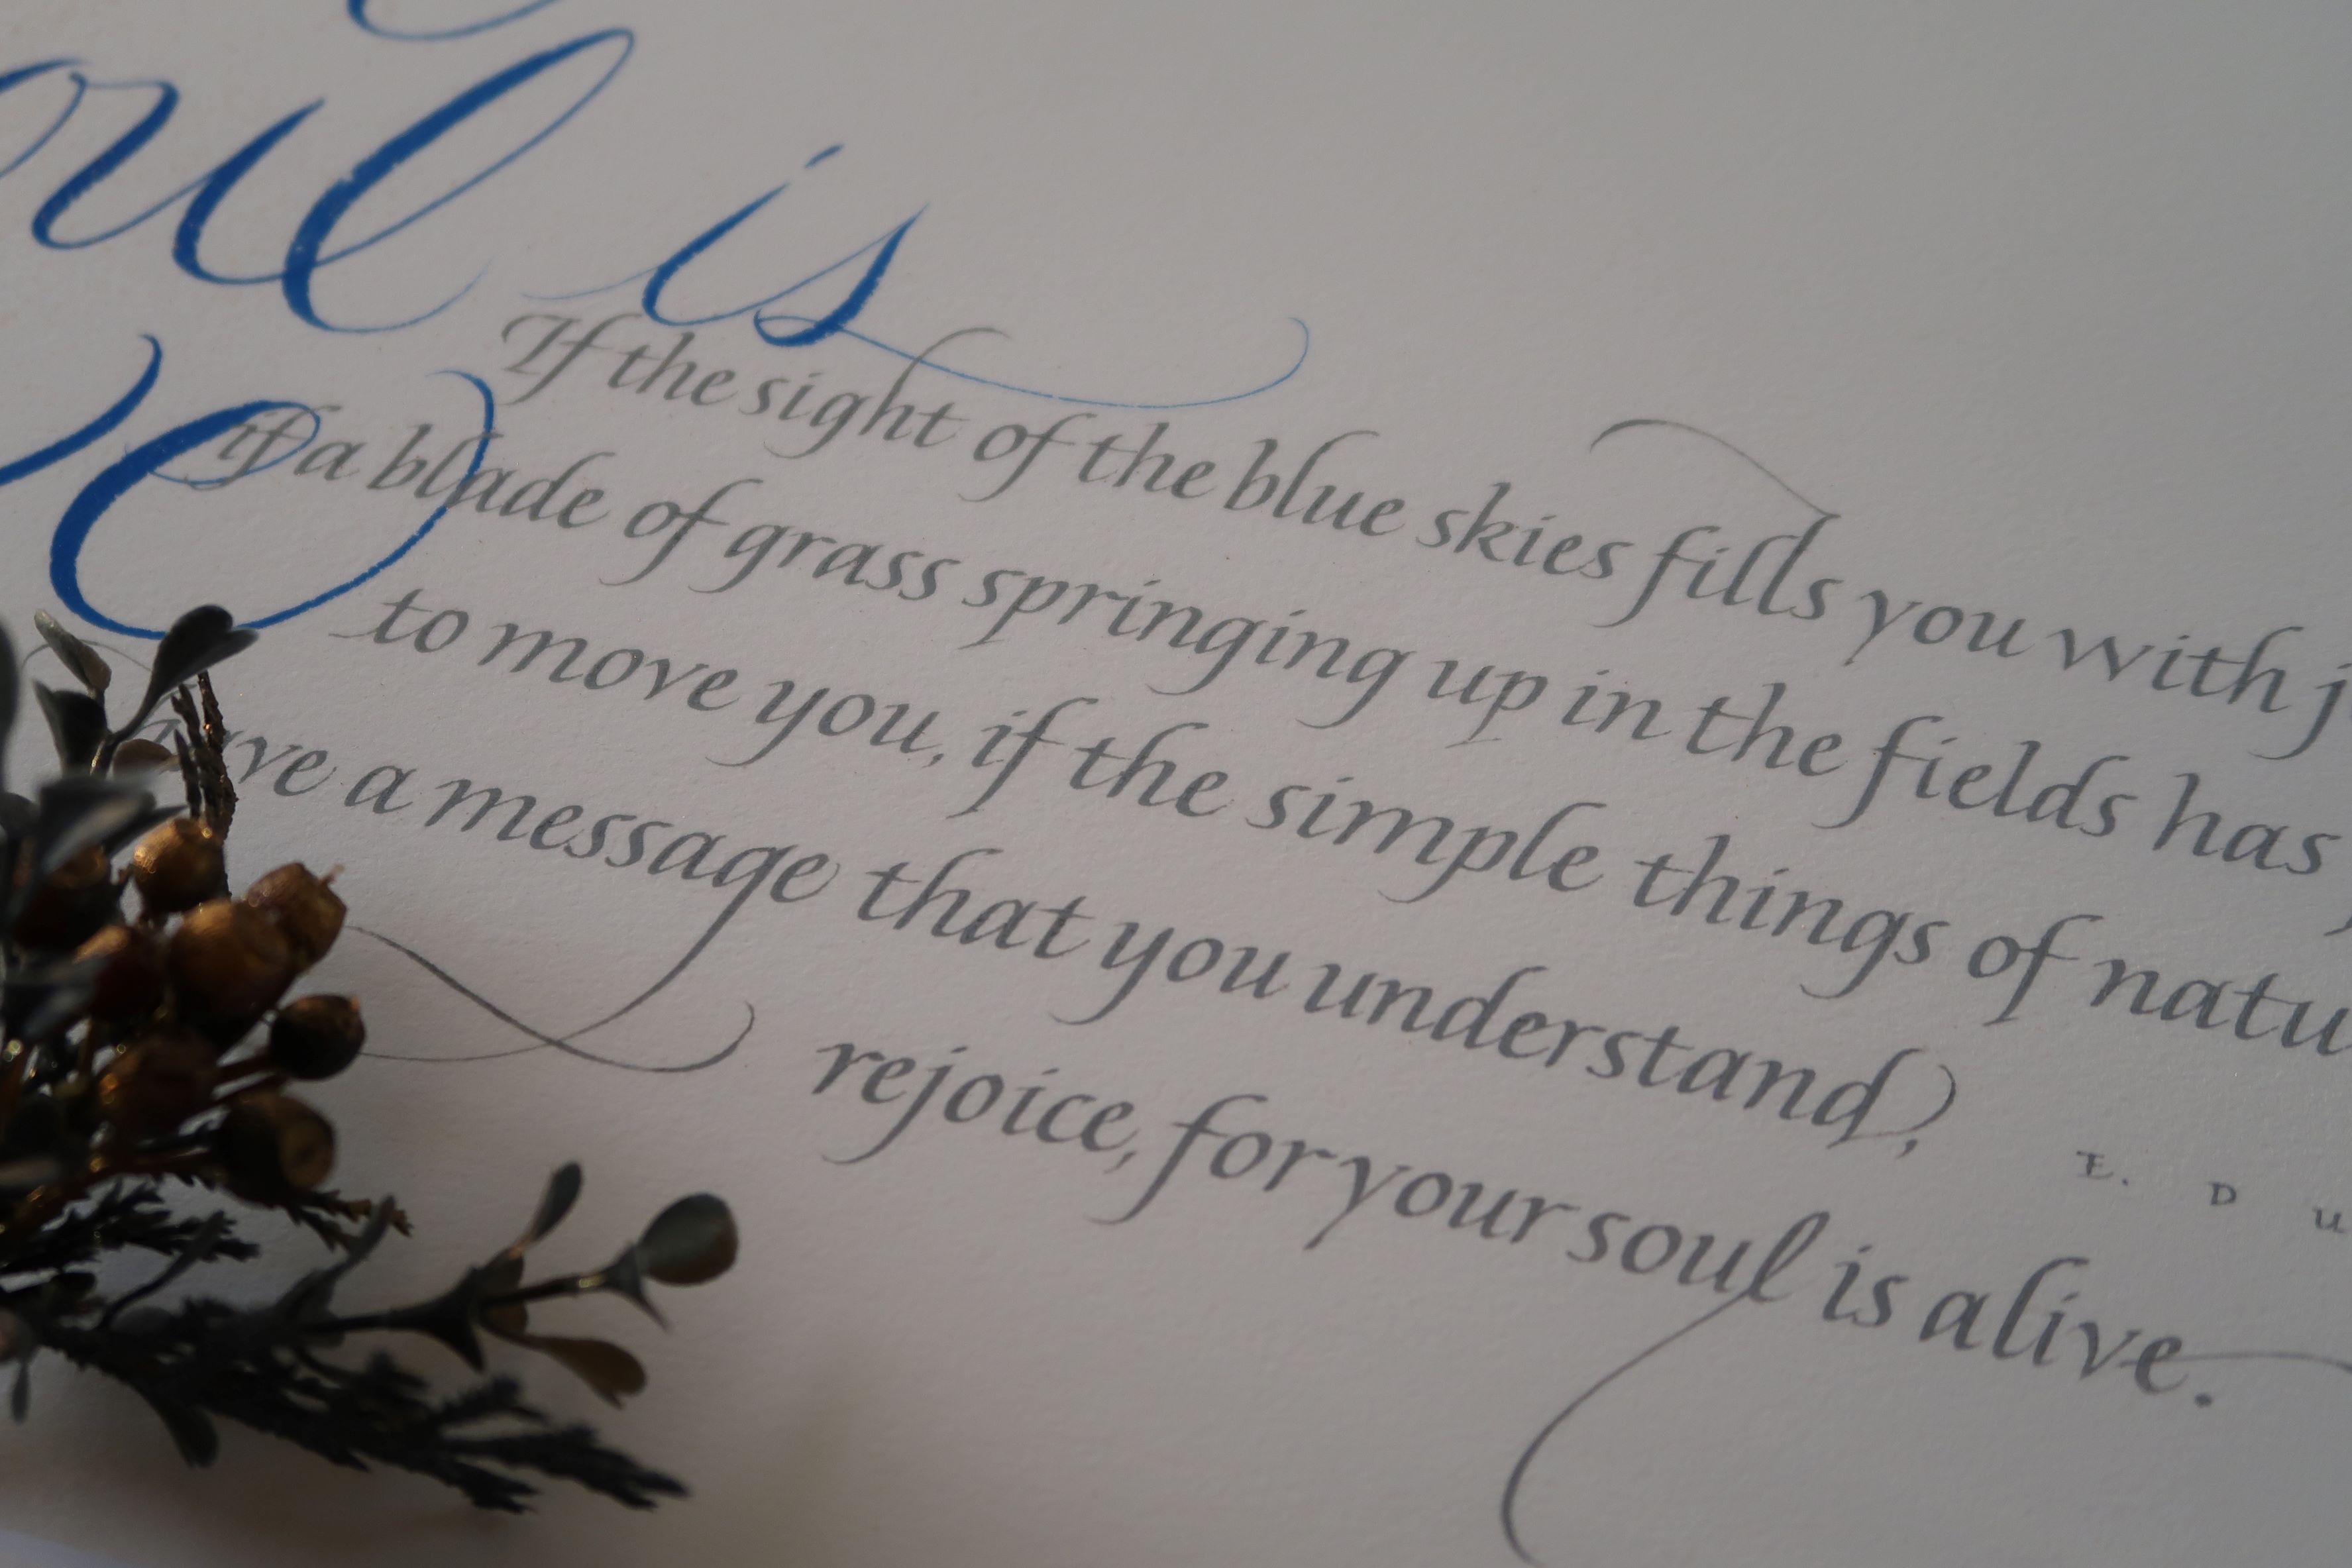 oul is
If the sight of the blue skies fills you with j
if a blade of grass springing up in the fields has
to move you, if the simple things of natu
ave a message that you understand,
rejoice, for your soul is alive.
E. D u